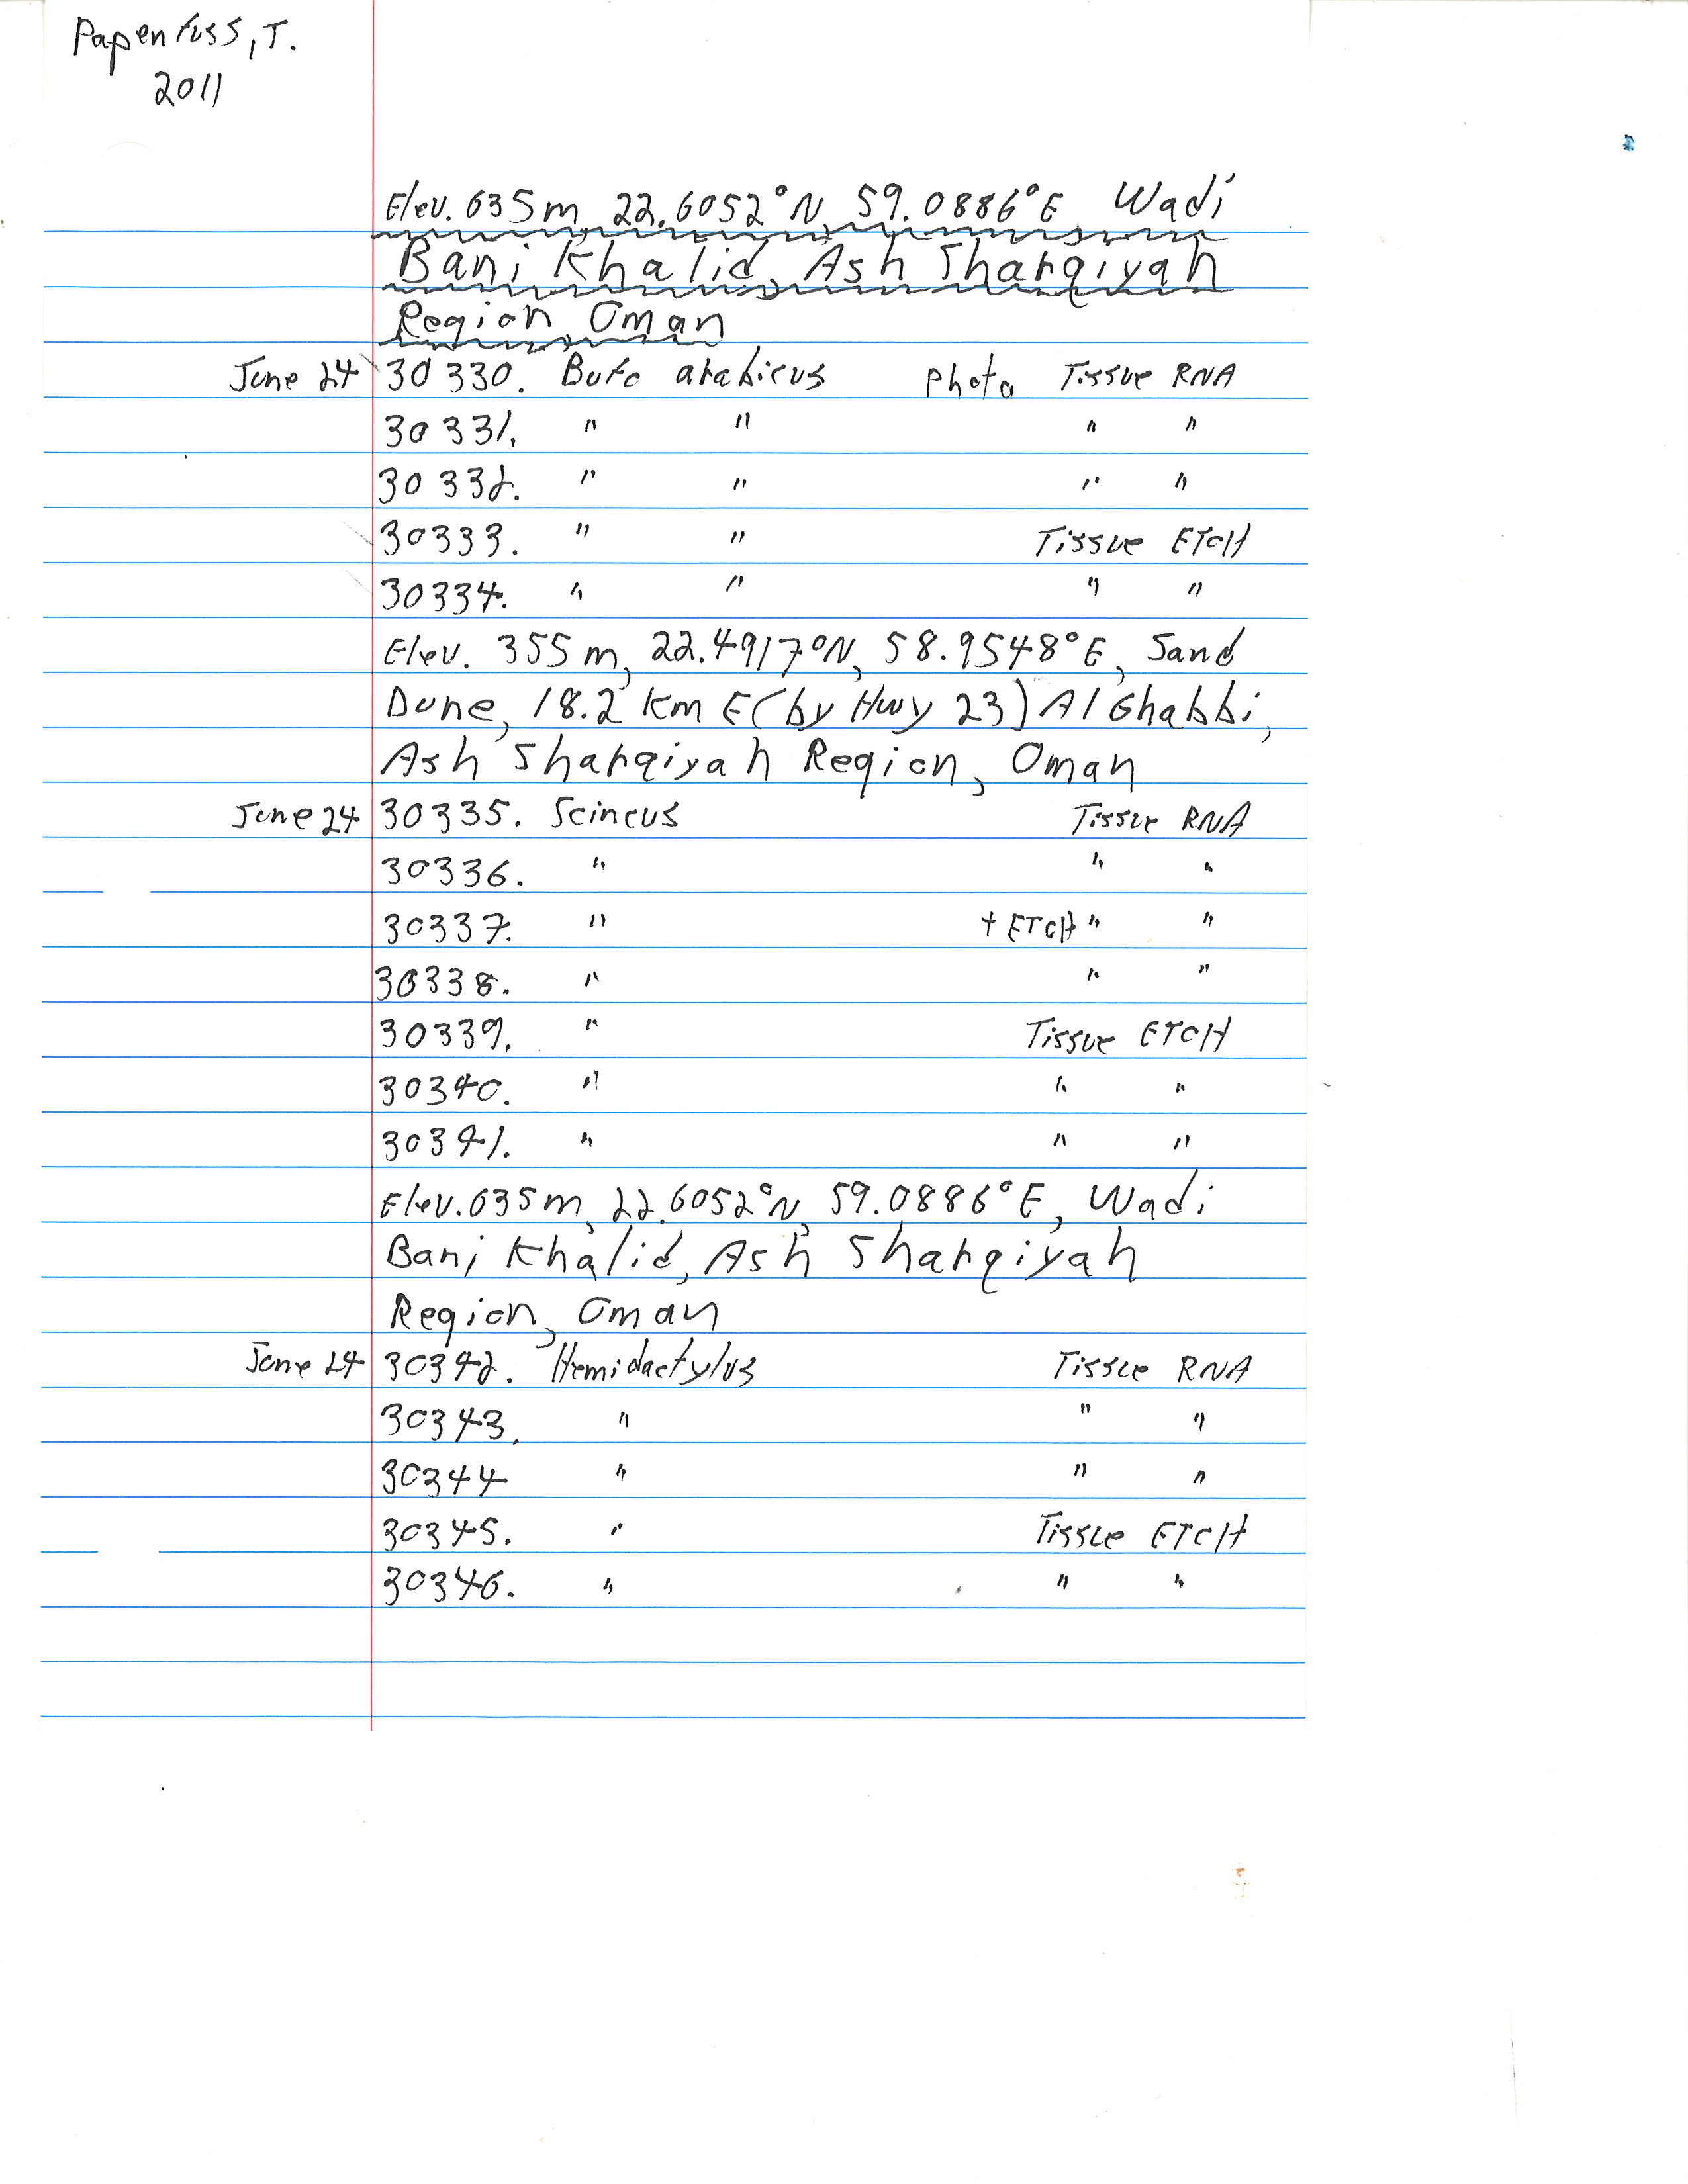 Papenfuss, T.
2011
Elev. 635m, 22.6052°N, 59.0886°E, Wadi
Bani Khalid, Ash Sharqiyah
Region, Oman
June 24 30330. Bufo arabicus Photo Tissue RNA
30331. " " " "
30332. " " " "
30333. " " Tissue ETOH
30334. " " " "
Elev. 355m, 22.4917°N, 58.9548°E, Sand
Dune, 18.2 Km E (by Hwy 23) Al Ghabbi,
Ash Sharqiyah Region, Oman
June 24 30335. Scincus Tissue RNA
30336. " " "
30337. " + ETOH " "
30338. " " "
30339. " Tissue ETOH
30340. " " "
30341. " " "
Elev. 635m, 22.6052°N, 59.0886°E, Wadi
Bani Khalid, Ash Sharqiyah
Region, Oman
June 24 30342. Hemidactylus Tissue RNA
30343. " " "
30344 " " "
30345. " Tissue ETOH
30346. " " "